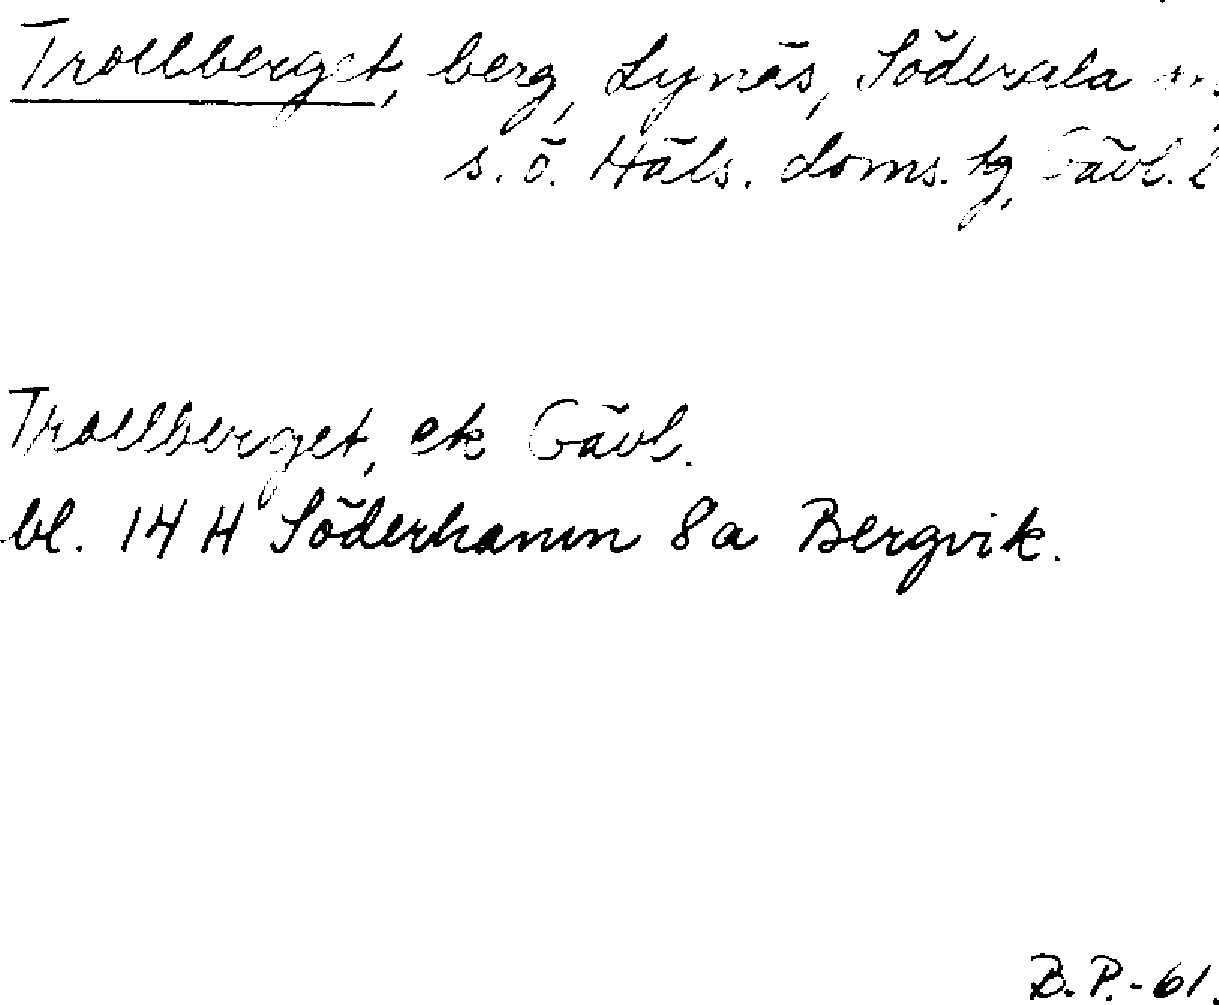 Trollberget, berg, Lynäs, Söderala
s. ö. Häls. doms. tg, Gävl. l
Trollberget, ek Gävl.
bl. 14 H Söderhamn 8a Bergvik.
B.P.-61.